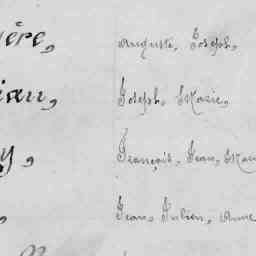 ère, Auguste, Joseph,
ian, Joseph, Marie,
y, François, Jean, Mari
, Jean, Julien, Anne